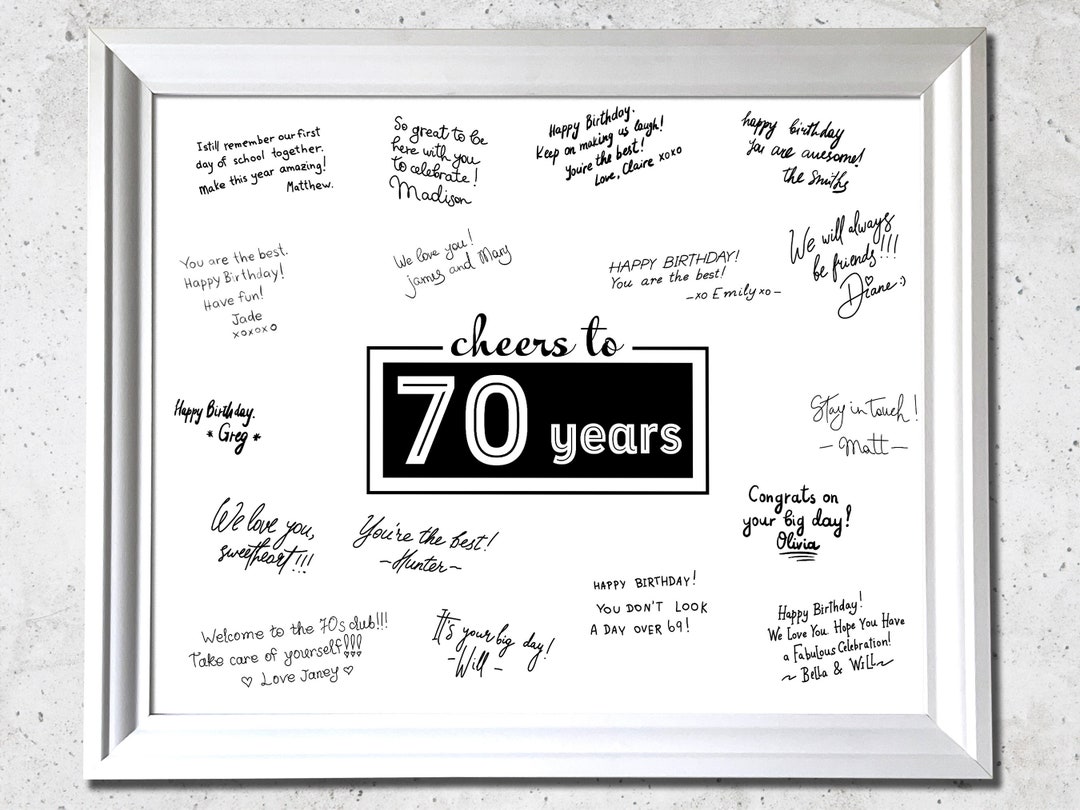 I still remember our first
day of school together.
Make this year amazing!
Matthew.
So great to be
here with you
to celebrate!
Madison
Happy Birthday.
Keep on making us laugh!
You're the best!
Love, Claire xoxo
happy birthday
You are awesome!
the Smiths
You are the best.
Happy Birthday!
Have fun!
Jade
xoxoxo
We love you!
james and Mary
HAPPY BIRTHDAY!
You are the best!
-xo Emily xo-
We will always
be friends!!!
Diane :)
cheers to
70 years
Happy Birthday.
* Greg *
Stay in touch!
- Matt -
We love you,
sweetheart!!!
You're the best!
- Hunter -
Congrats on
your big day!
Olivia
Welcome to the 70s club!!!
Take care of yourself!!!
♡ Love Janey ♡
It's your big day!
- Will -
HAPPY BIRTHDAY!
YOU DON'T LOOK
A DAY OVER 69!
Happy Birthday!
We Love You. Hope You Have
a Fabulous Celebration!
~ Bella & Will ~